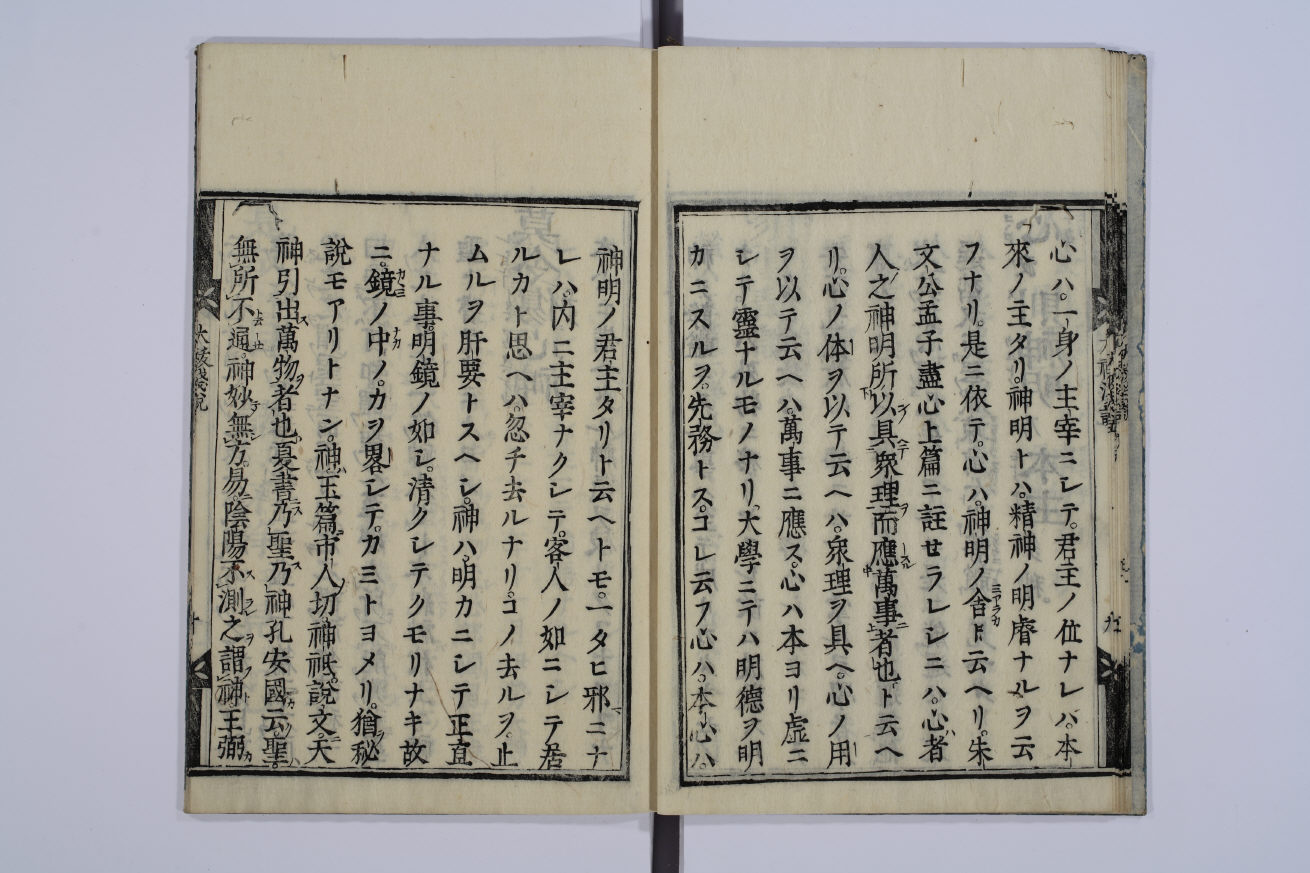 心ハ。一身ノ主宰ニシテ。君主ノ位ナレハ。本
來ノ主タリ。神明トハ。精神ノ明睿ナルヲ云
フナリ。是ニ依テ。心ハ。神明ノ舎ト云ヘリ。朱
文公孟子盡心上篇ニ註セラレシニハ。心者
人之神明所以具衆理而應萬事者也。ト云ヘ
リ。心ノ体ヲ以テ云ヘハ。衆理ヲ具ヘ。心ノ用
ヲ以テ云ヘハ。萬事ニ應ス。心ハ本ヨリ虚ニ
シテ靈ナルモノナリ。大學ニテハ明德ヲ明
カニスルヲ。先務トス。コレ云フ心ハ。本心ハ。
神明ノ君主タリト云ヘトモ。一タヒ邪ニナ
レハ。内ニ主宰ナクシテ。客人ノ如ニシテ居
ルカト思ヘハ。忽チ去ルナリ。コノ去ルヲ。止
ムルヲ肝要トスヘシ。神ハ。明カニシテ正直
ナル事。明鏡ノ如シ。清クシテクモリナキ故
ニ。鏡ノ中ノ。カヲ畧シテ。カミトヨメリ。猶秘
說モアリトナン。神玉篇市人切神祇。說文。天
神引出萬物者也。夏書乃聖乃神孔安國云聖。
無所不通。神妙無方。易。陰陽不測之謂神王弼